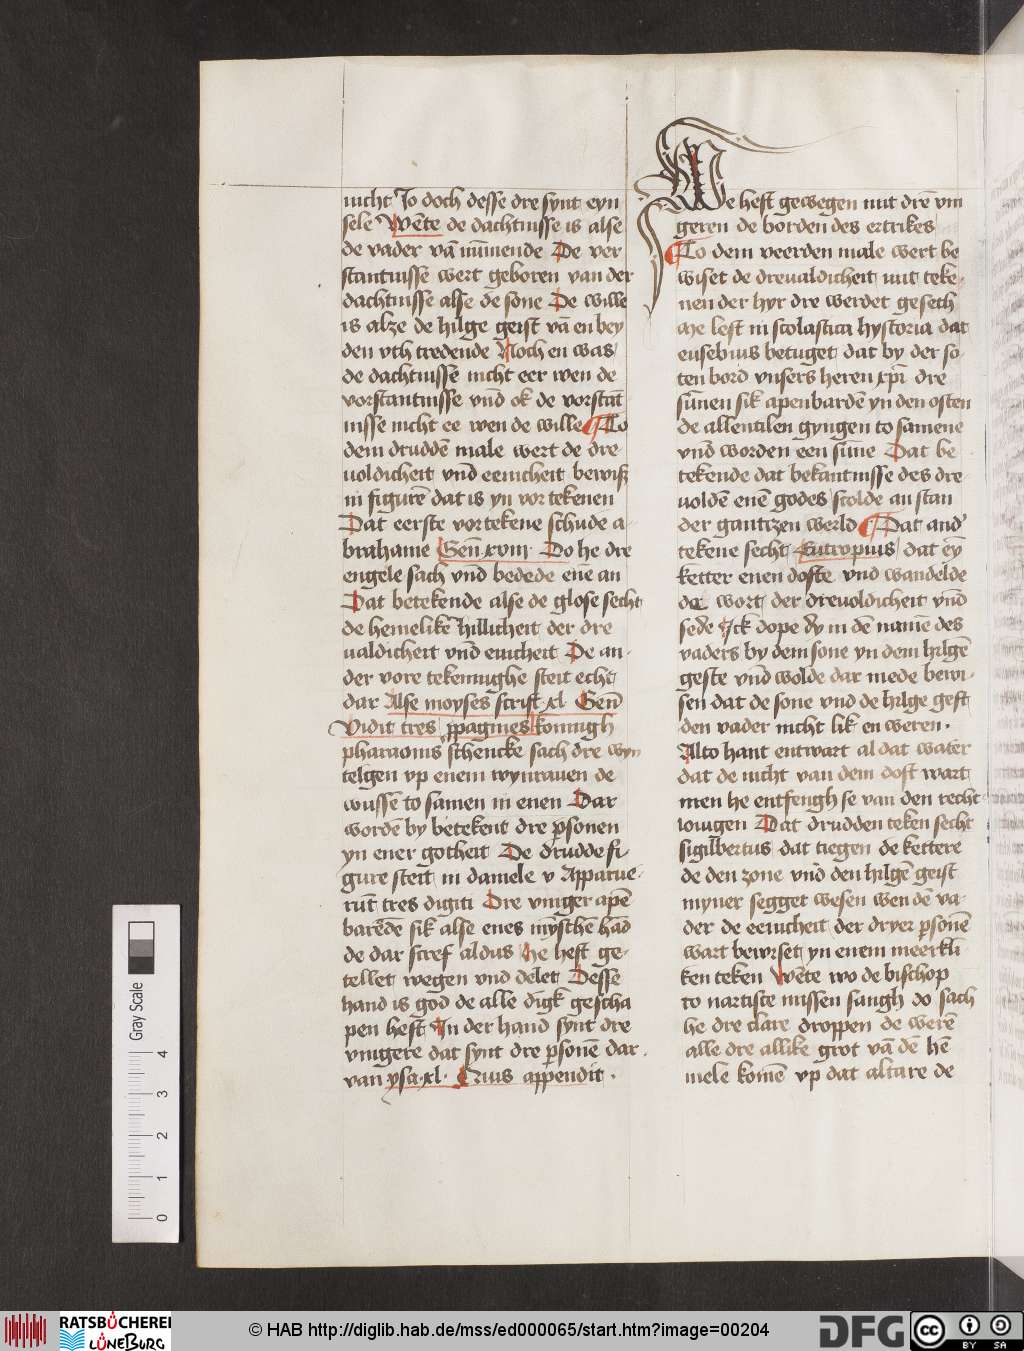 nicht Jo doch desse dre synt eyn
sele Wēte de dachtnisse is alse
de vader vā nūmende De ver
stantnisse wert geboren van der
dachtnisse alse de sone De wille
is alze de hilge geist vā en bey
den vth tredende Noch en was
de dachtnisse nicht eer wen de
vorstantnisse vnd ok de vorstāt
nisse nicht ee wen de wille To
dem druddē male wert de dre
uoldicheit vnd eenicheit bewisz
in figurē dat is yn vor tekenen
Dat eerste vortekene schude a-
brahame Geñ xviij Do he dre
engele sach vnd bedede ene an
Dat betekende alse de glose secht
de hemelikē hillicheit der dre
ualdicheit vnd enicheit De an-
der vore tekenninghe steit echt
dar Alse moyses scrift xl Geñ
Vidit tres ppagines konnigh
pharaonis schencke sach dre wyn
telgen vp enem wynraven de
wussē to samen in enen Dar
wordē by betekent dre psonen
yn ener gotheit De drudde fi
gure steit in daniele v Apparue-
rūt tres digiti Dre vinger apē
barēde sik alse enes mȳschē hād
de dar scref aldus He heft ge-
tellet wegen vnd delet Desse
hand is god de alle digk gescha
pen heft In der hand synt dre
vingere dat synt dre psonē dar
van ysa xl Quis appendit
We heft gewegen mit drē vin
geren de borden des ertrikes
To dem veerden male wert be
wiset de dreualdicheit mit teke-
nen der hyr dre werdet gesech
Me lest in scolastica hystoria dat
eusebius betuget dat by der so-
ten bord vnsers heren xpi dre
sūnen sik apenbardē yn den osten
de allentilen gyngen to samene
vnd worden een sūne Dat be
tekende dat bekantnisse des dre
uoldē enē godes scolde an stan
der gantzen werld Dat and'
tekene secht Eutropius dat eȳ
ketter enen dofte vnd wandelde
de wort der dreuoldicheit vnd
sede Ick dope dy in dē name des
vaders by dem sone yn dem hilgē
geste vnd wolde dar mede bewi-
sen dat de sone vnd de hilge gest
den vader nicht lik en weren
Alto hant entwart al dat water
dat de nicht van dem doft wart
men he entfengh se van den recht
louigen Dat drudden teken secht
sigilbertus dat tiegen de kettere
de den zone vnd den hilgē geist
myner segget wesen wen dē va-
der de eenicheit der dryer psonē
wart bewiset yn enem meerkli
ken teken Wēte wo de bischop
to nartiste missen sangh do sach
he dre clare droppen de werē
alle dre allike grot vā dē hē
mele komē vp dat altare de
Gray Scale
4
3
2
1
0
RATSBÜCHEREI
LÜNEBURG
© HAB http://diglib.hab.de/mss/ed000065/start.htm?image=00204
DFG
cc
BY SA